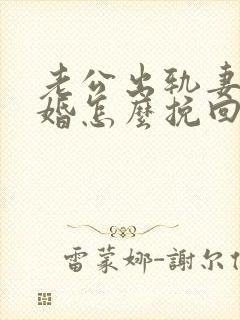 老公出轨妻
婚怎麼挽回
雷蒙娜-謝尔